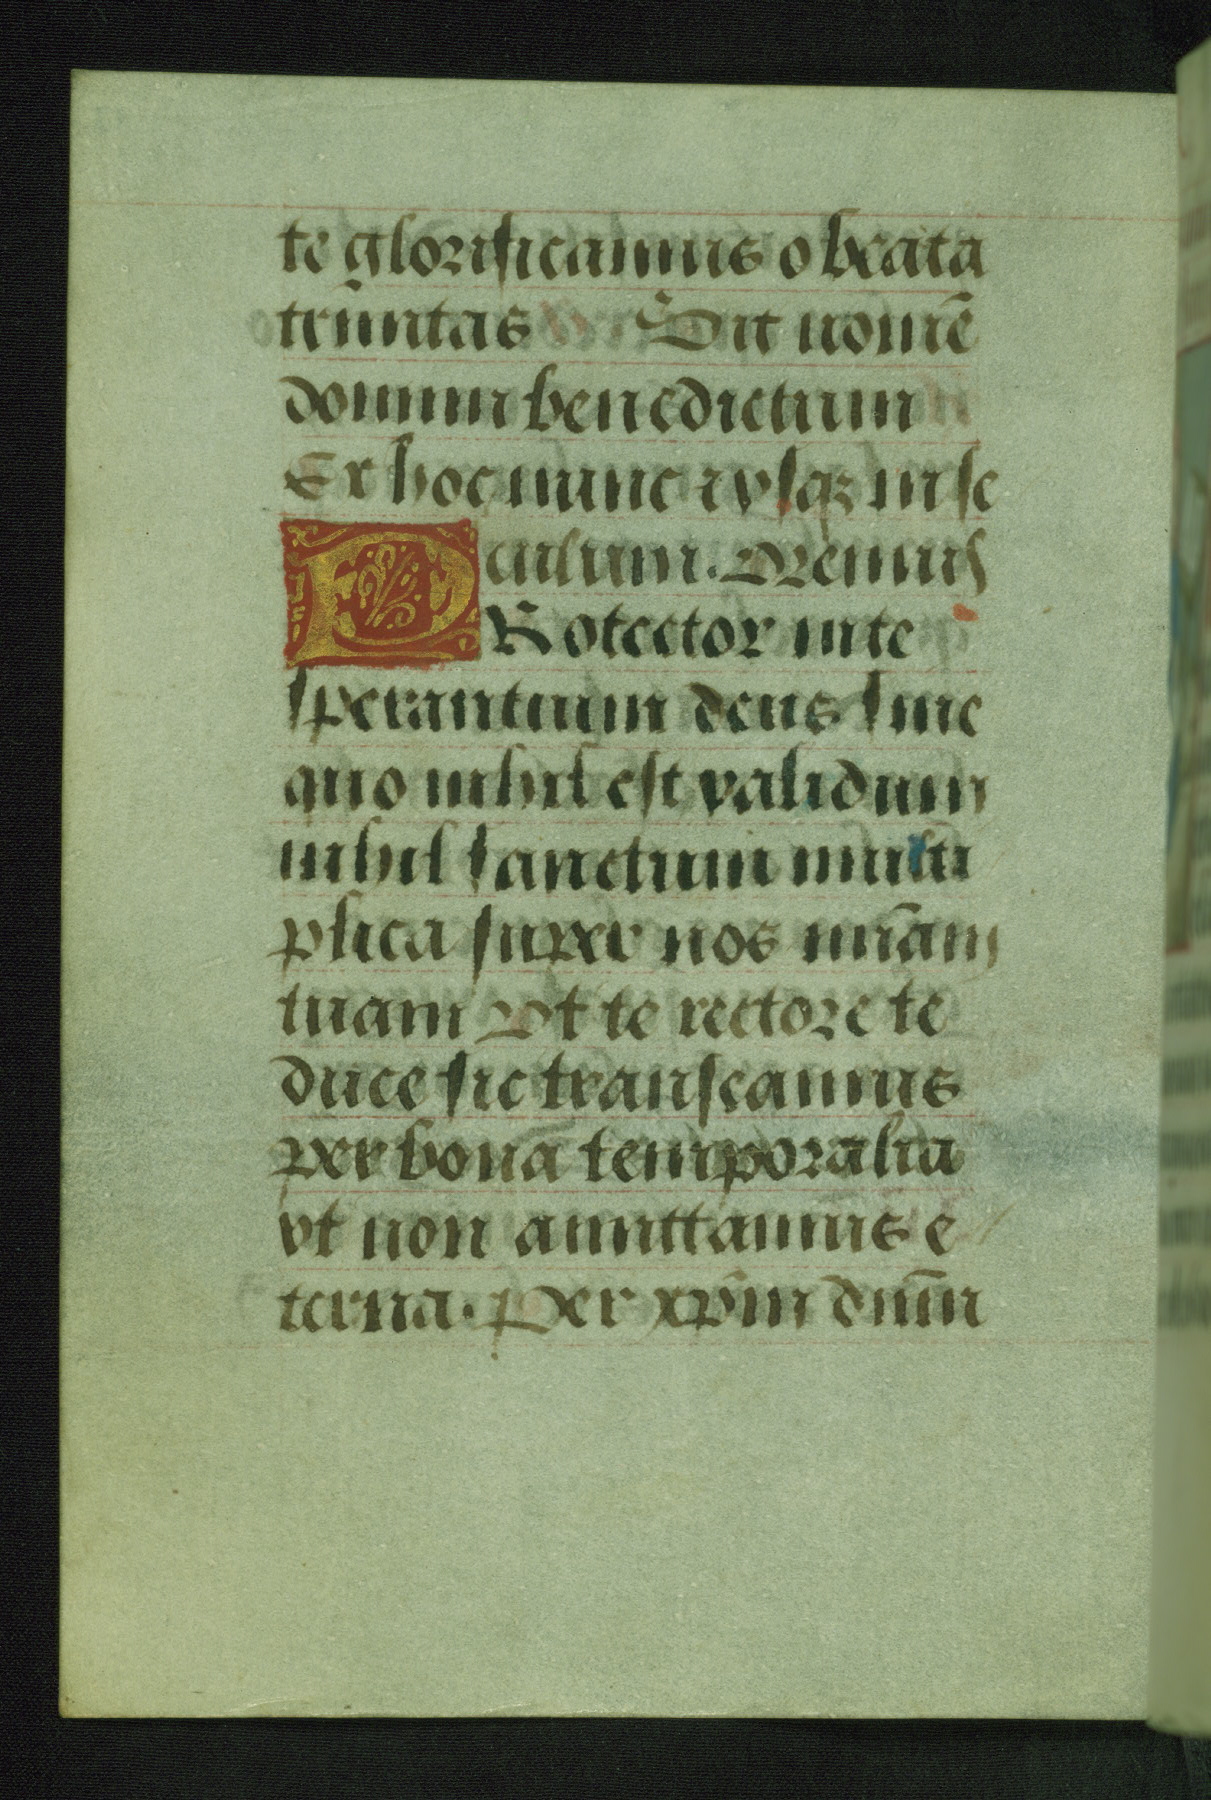 te glorificamus o beata
trinitas Sit nomē
domini benedictum
Ex hoc nunc ⁊ vsqꝫ in se
culum. Oremus
PRotector in te
sperantium deus sine
quo nihil est validum
nihil sanctum multi
plica super nos mīam
tuam Vt te rectore te
duce sic transeamus
per bona temporalia
vt non amittamus e
terna. Per xp̄m dnm̄